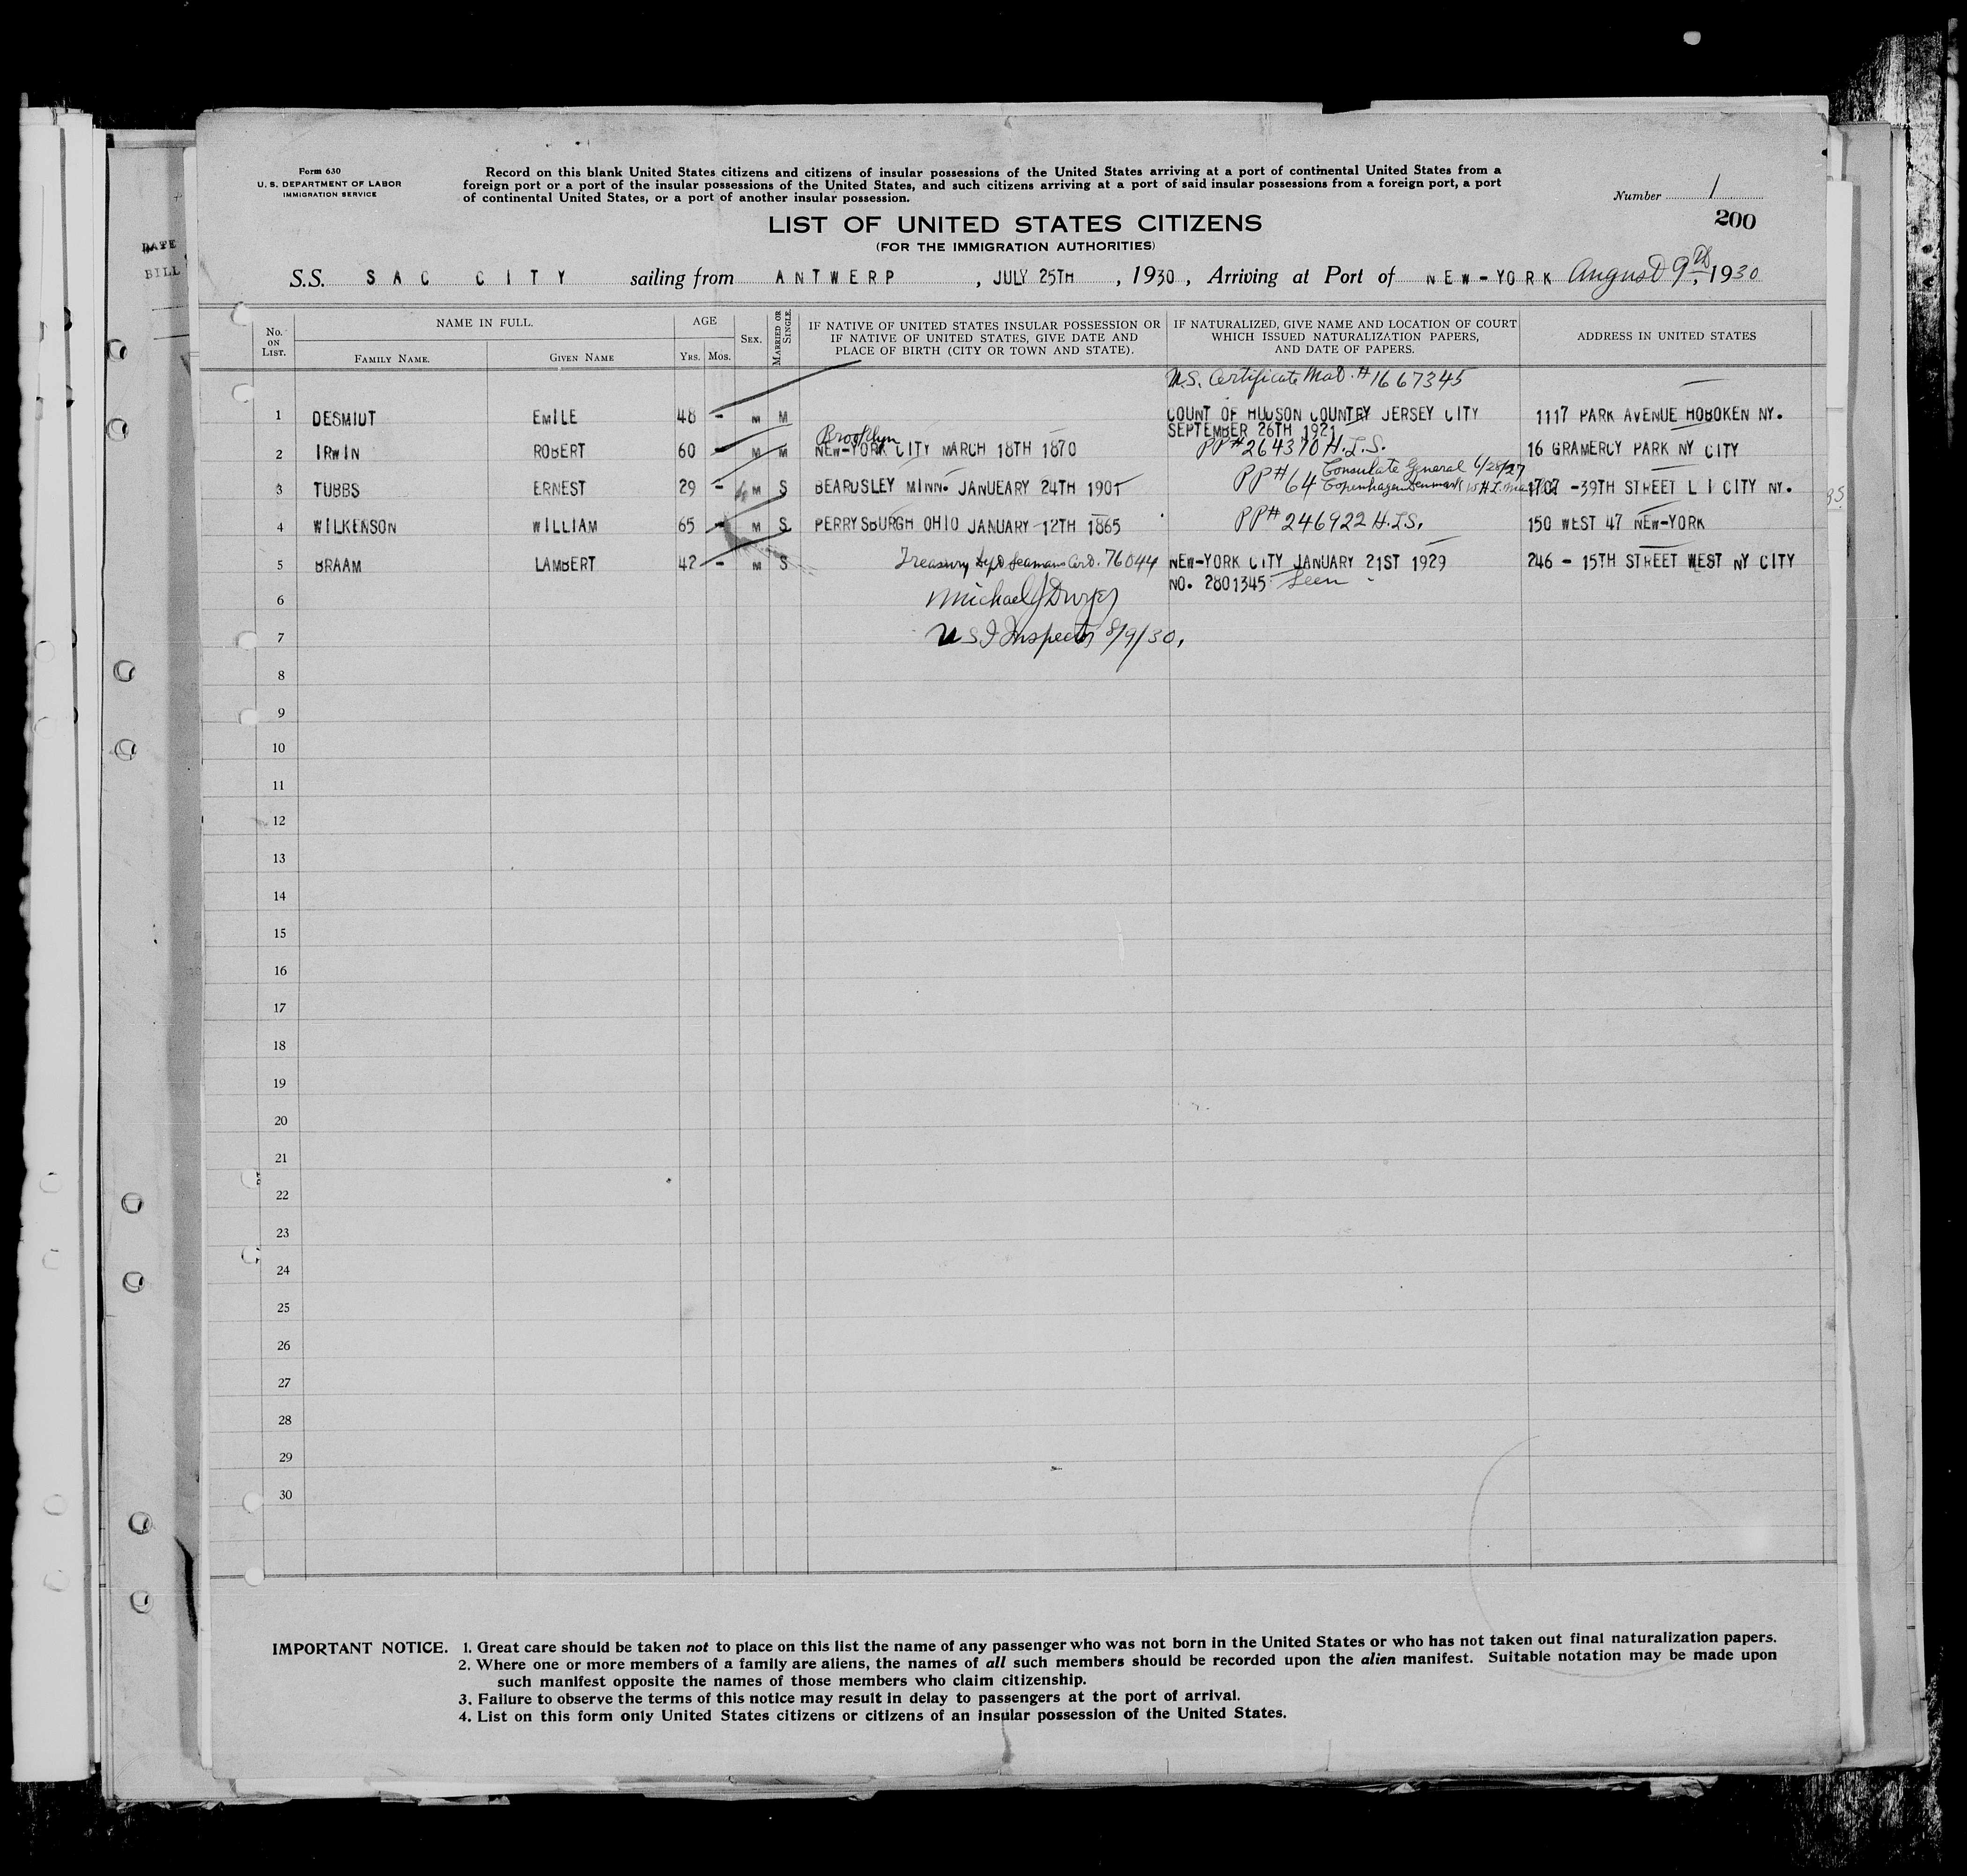 DATE
BILL
Form 630
U. S. DEPARTMENT OF LABOR
IMMIGRATION SERVICE
Record on this blank United States citizens and citizens of insular possessions of the United States arriving at a port of continental United States from a
foreign port or a port of the insular possessions of the United States, and such citizens arriving at a port of said insular possessions from a foreign port, a port
of continental United States, or a port of another insular possession.
Number 1
200
LIST OF UNITED STATES CITIZENS
(FOR THE IMMIGRATION AUTHORITIES)
S.S. SAC CITY sailing from ANTWERP, JULY 25TH, 1930, Arriving at Port of NEW-YORK August 9th, 1930
No. ON LIST. NAME IN FULL. FAMILY NAME. GIVEN NAME AGE YRS. MOS. SEX. MARRIED OR SINGLE. IF NATIVE OF UNITED STATES INSULAR POSSESSION OR IF NATIVE OF UNITED STATES, GIVE DATE AND PLACE OF BIRTH (CITY OR TOWN AND STATE). IF NATURALIZED, GIVE NAME AND LOCATION OF COURT WHICH ISSUED NATURALIZATION PAPERS, AND DATE OF PAPERS. ADDRESS IN UNITED STATES
U.S. Certificate Nat. # 1667345
1 DESMIDT EMILE 48 - M M COUNT OF HUDSON COUNTRY JERSEY CITY 1117 PARK AVENUE HOBOKEN NY.
SEPTEMBER 26TH 1921
Brooklyn
2 IRWIN ROBERT 60 - M M NEW-YORK CITY MARCH 18TH 1870 PP# 264370 H.L.S. 16 GRAMERCY PARK NY CITY
Consulate General 6/28/27
3 TUBBS ERNEST 29 - M S BEARDSLEY MINN. JANUEARY 24TH 1901 PP# 64 Copenhagen Denmark 1707 -39TH STREET L I CITY NY.
4 WILKENSON WILLIAM 65 - M S PERRYSBURGH OHIO JANUARY 12TH 1865 PP# 246922 H.L.S. 150 WEST 47 NEW-YORK
5 BRAAM LAMBERT 42 - M S Treasury Dept Seamans Card. 76044 NEW-YORK CITY JANUARY 21ST 1929 246 - 15TH STREET WEST NY CITY
NO. 2801345 Seen
6 Michael J Dwyer
7 U S I Inspector 8/9/30.
8
9
10
11
12
13
14
15
16
17
18
19
20
21
22
23
24
25
26
27
28
29
30
IMPORTANT NOTICE. 1. Great care should be taken not to place on this list the name of any passenger who was not born in the United States or who has not taken out final naturalization papers.
2. Where one or more members of a family are aliens, the names of all such members should be recorded upon the alien manifest. Suitable notation may be made upon
such manifest opposite the names of those members who claim citizenship.
3. Failure to observe the terms of this notice may result in delay to passengers at the port of arrival.
4. List on this form only United States citizens or citizens of an insular possession of the United States.